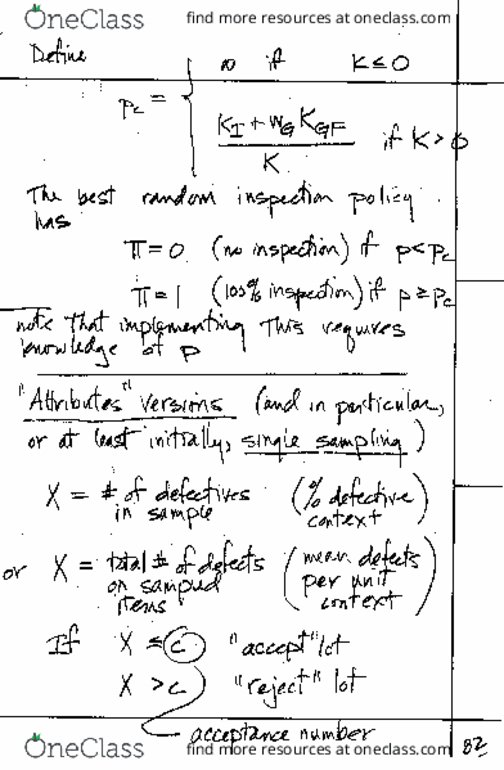 OneClass find more resources at oneclass.com
Define
∞ if K ≤ 0
p_c = {
(K_I + w_G K_GF) / K if K > 0
The best random inspection policy
has
π = 0 (no inspection) if p < p_c
π = 1 (100% inspection) if p ≥ p_c
note that implementing this requires
knowledge of p
"Attributes" versions (and in particular,
or at least initially, single sampling)
X = # of defectives (% defective
in sample context)
or X = total # of defects (mean defects
on sampled per unit
items context)
If X ≤ c "accept" lot
X > c "reject" lot
acceptance number
OneClass find more resources at oneclass.com 82